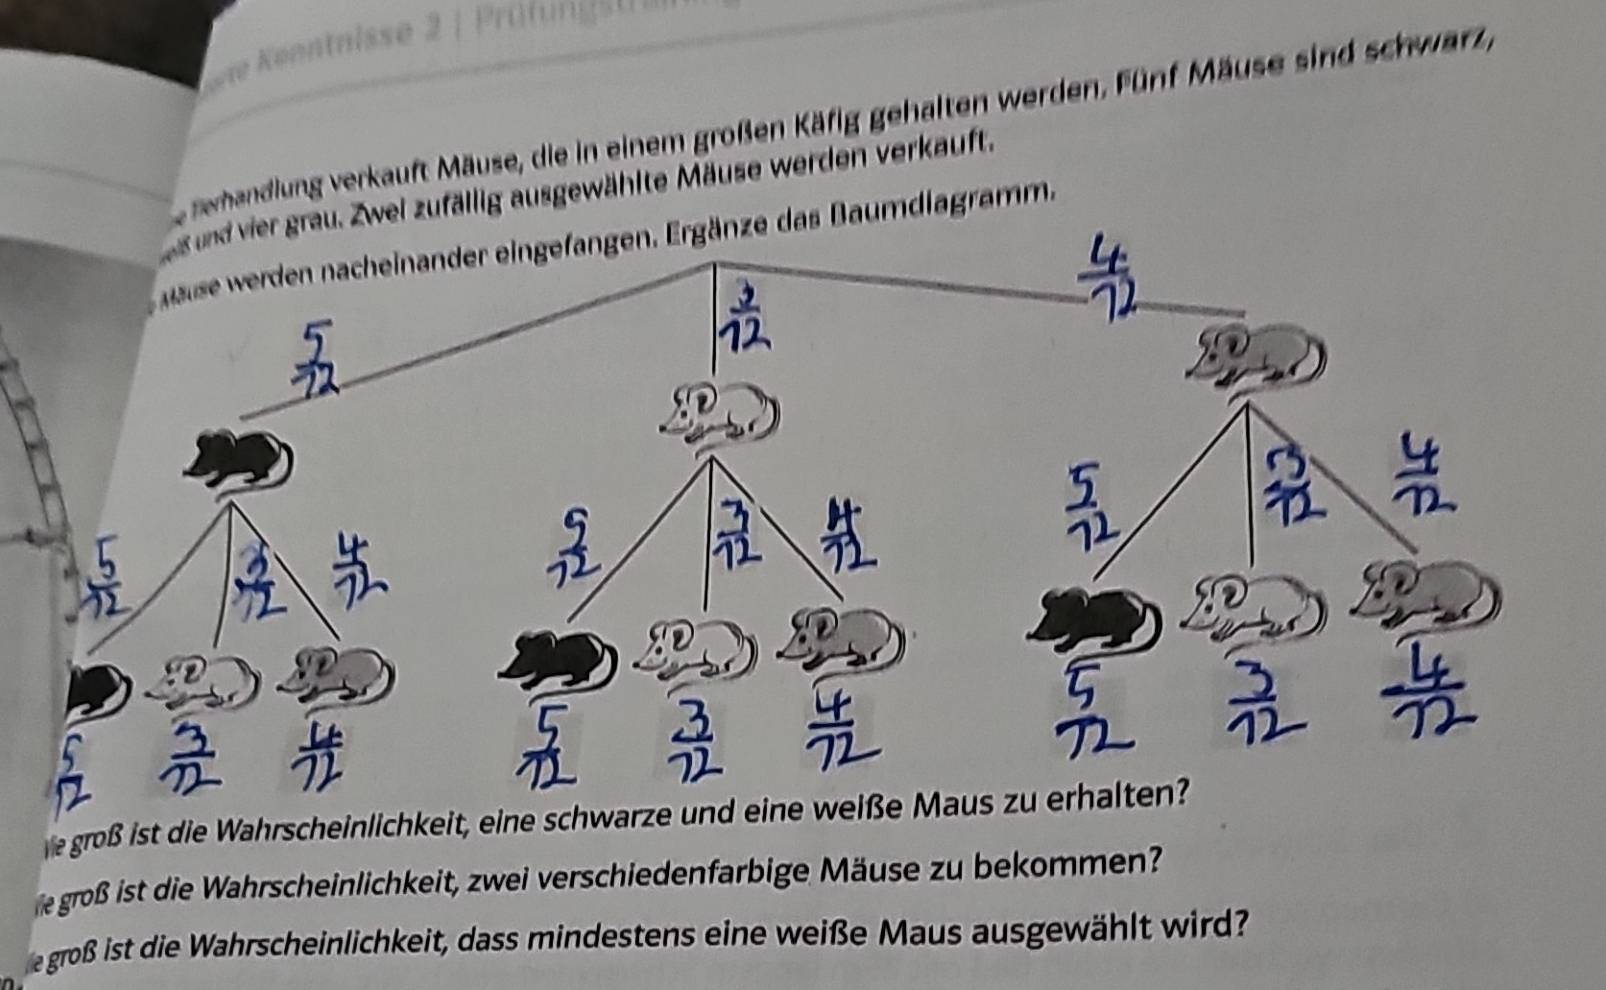 Kenntnisse 2 | Prüfungstraining
Tierhandlung verkauft Mäuse, die in einem großen Käfig gehalten werden. Fünf Mäuse sind schwarz,
und vier grau. Zwei zufällig ausgewählte Mäuse werden verkauft.
Mäuse werden nacheinander eingefangen. Ergänze das Baumdiagramm.
5/12 3/12 4/12
5/12 3/12 4/12 5/12 3/12 4/12 5/12 3/12 4/12
5/12 3/12 4/12 5/12 3/12 4/12 5/12 3/12 4/12
groß ist die Wahrscheinlichkeit, eine schwarze und eine weiße Maus zu erhalten?
groß ist die Wahrscheinlichkeit, zwei verschiedenfarbige Mäuse zu bekommen?
groß ist die Wahrscheinlichkeit, dass mindestens eine weiße Maus ausgewählt wird?